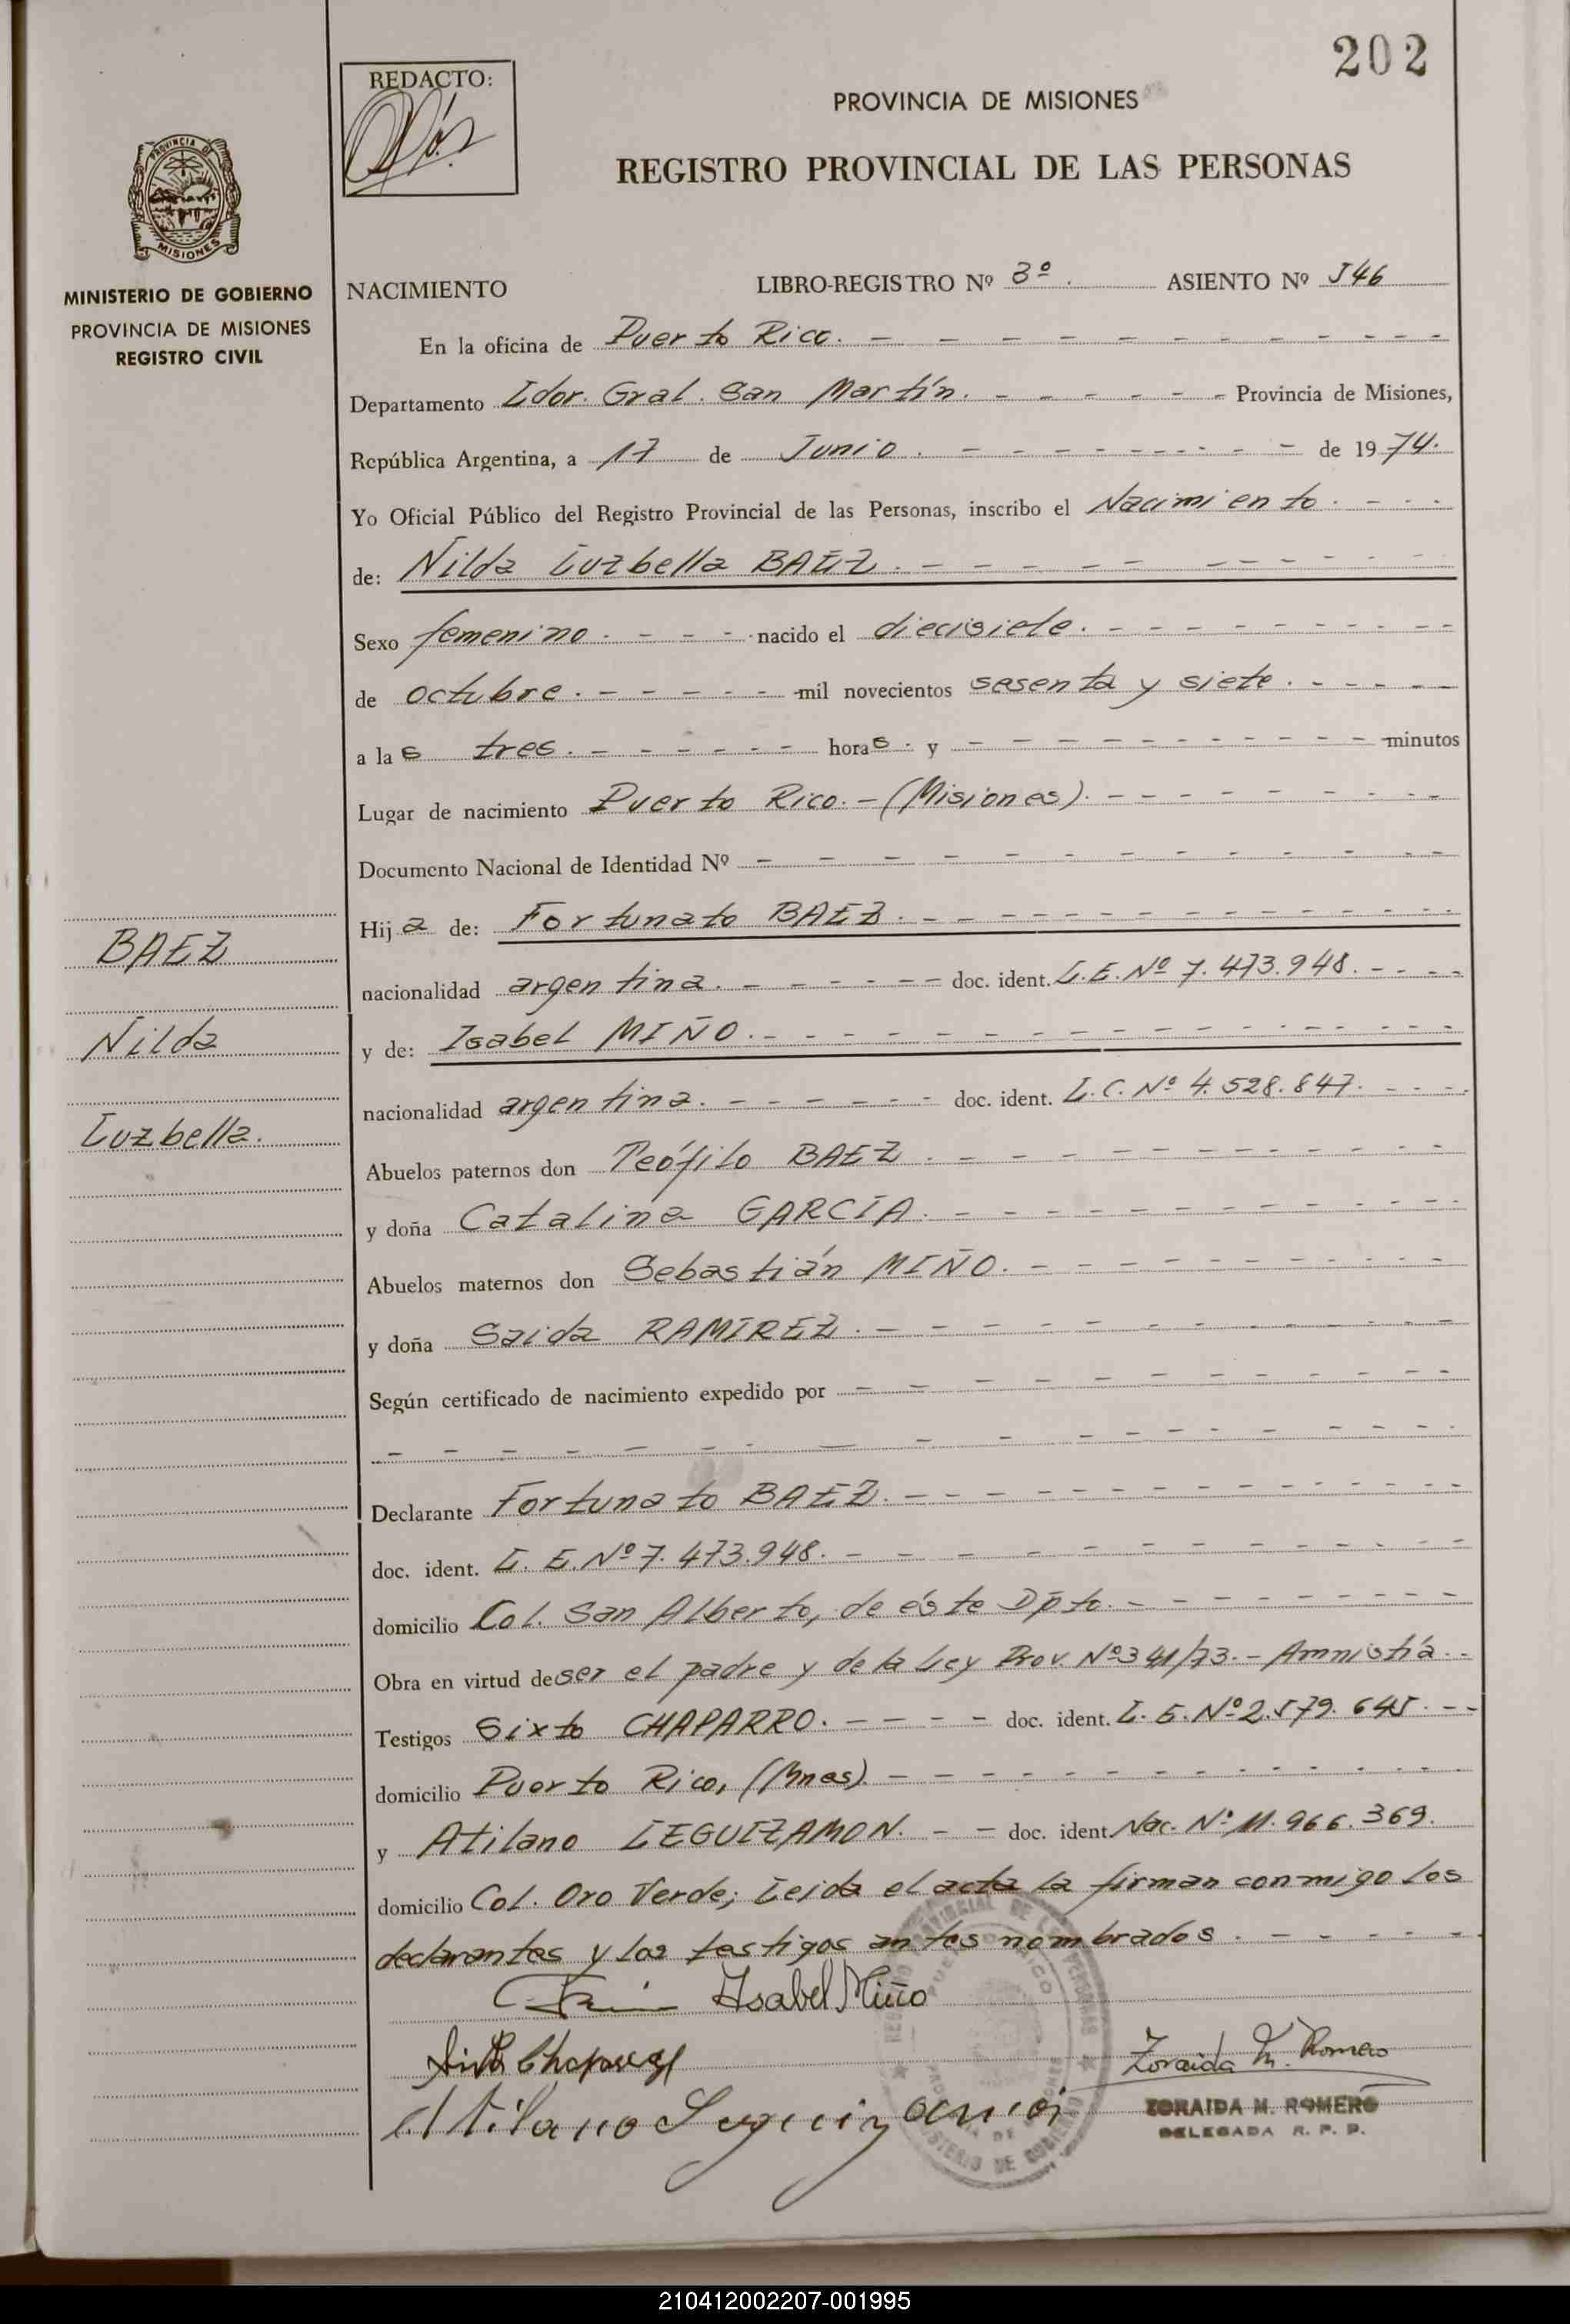 202
REDACTO:
PROVINCIA DE MISIONES
REGISTRO PROVINCIAL DE LAS PERSONAS
PROVINCIA DE
MISIONES
MINISTERIO DE GOBIERNO
PROVINCIA DE MISIONES
REGISTRO CIVIL
NACIMIENTO LIBRO-REGISTRO Nº 3º. ASIENTO Nº 546
En la oficina de Puerto Rico.
Departamento Ldor. Gral. San Martín. Provincia de Misiones,
República Argentina, a 17 de Junio. de 1974.
Yo Oficial Público del Registro Provincial de las Personas, inscribo el Nacimiento.
de: Nilda Luzbella BAEZ.
Sexo femenino. nacido el diecisiete.
de octubre. mil novecientos sesenta y siete.
a las tres. horas. y minutos
Lugar de nacimiento Puerto Rico.-(Misiones).
Documento Nacional de Identidad Nº
Hija de: Fortunato BAEZ.
nacionalidad argentina. doc. ident. L.E. Nº 7.473.948.
y de: Isabel MIÑO.
nacionalidad argentina. doc. ident. L.C. Nº 4.528.847.
Abuelos paternos don Teófilo BAEZ.
y doña Catalina GARCÍA.
Abuelos maternos don Sebastián MIÑO.
y doña Saida RAMIREZ.
Según certificado de nacimiento expedido por
Declarante Fortunato BAEZ.
doc. ident. L.E. Nº 7.473.948.
domicilio Col. San Alberto, de éste Dpto.
Obra en virtud de ser el padre y de la Ley Prov. Nº 341/73.- Amnistía.
Testigos Sixto CHAPARRO. doc. ident. L.E. Nº 2.579.645.
domicilio Puerto Rico, (Mnes).
y Atilano LEGUIZAMON. doc. ident. Nac. Nº 11.966.369.
domicilio Col. Oro Verde; Leida el acta la firman conmigo los
declarantes y los testigos antes nombrados.
BAEZ
Nilda
Luzbella.
Isabel Miño
Sixto Chaparro
Atilano Leguizamón
Zoraida M. Romero
ZORAIDA M. ROMERO
DELEGADA R. P. P.
210412002207-001995